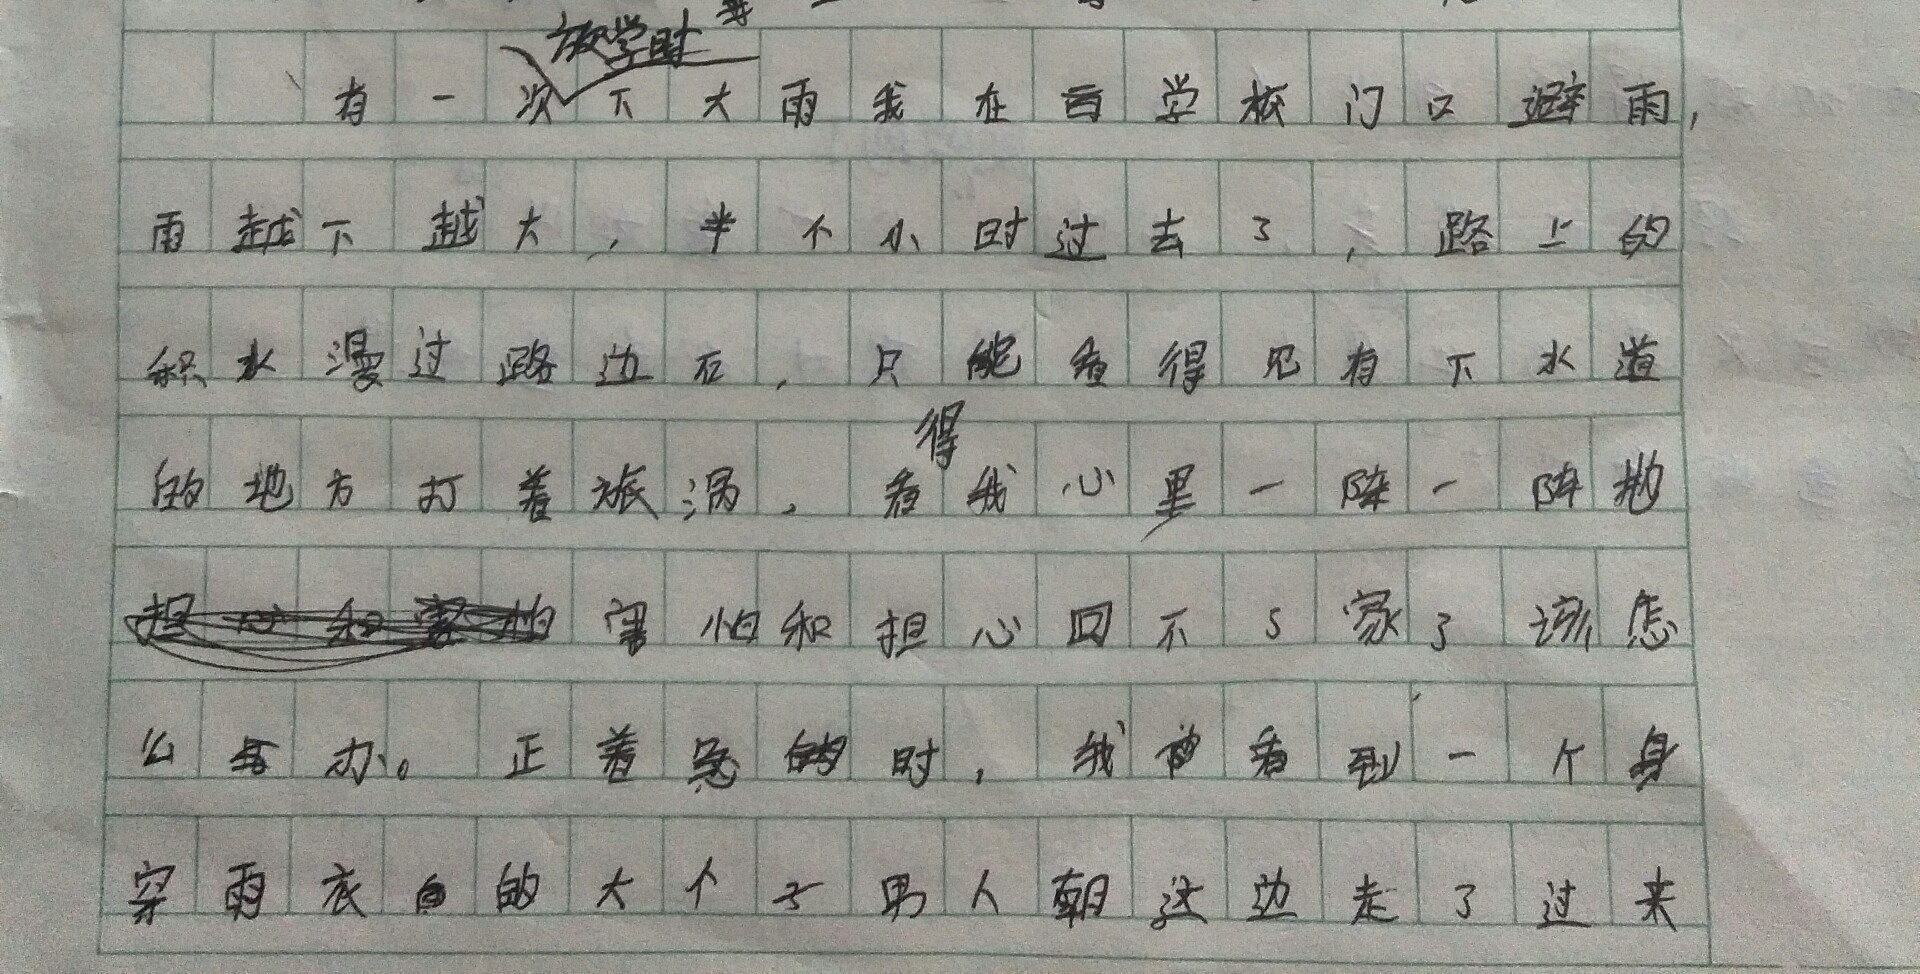 有一次放学时下大雨我在学校门口避雨，
雨越下越大，半个小时过去了，路上的
积水漫过路边石，只能看得见有下水道
的地方打着旋涡，看得我心里一阵一阵
害怕和担心回不了家了该怎
么办。正着急时，我看到一个身
穿雨衣的大个子男人朝这边走了过来